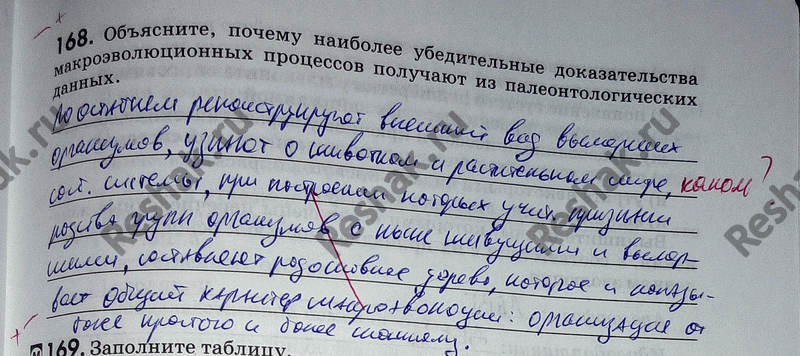 168. Объясните, почему наиболее убедительные доказательства
макроэволюционных процессов получают из палеонтологических
данных.
По останкам реконструируют внешний вид вымерших
организмов, узнают о животном и растительном мире, каком?
сост. системы, при построении которых учит. признаки
родства групп организмов с ныне живущими и вымер-
шими, составляют родословное дерево, которое и показы-
вает общий характер макроэволюции: организация от
более простого к более сложному.
169. Заполните таблицу.
Reshak.ru
Reshak.ru
Reshak.ru
Reshak.ru